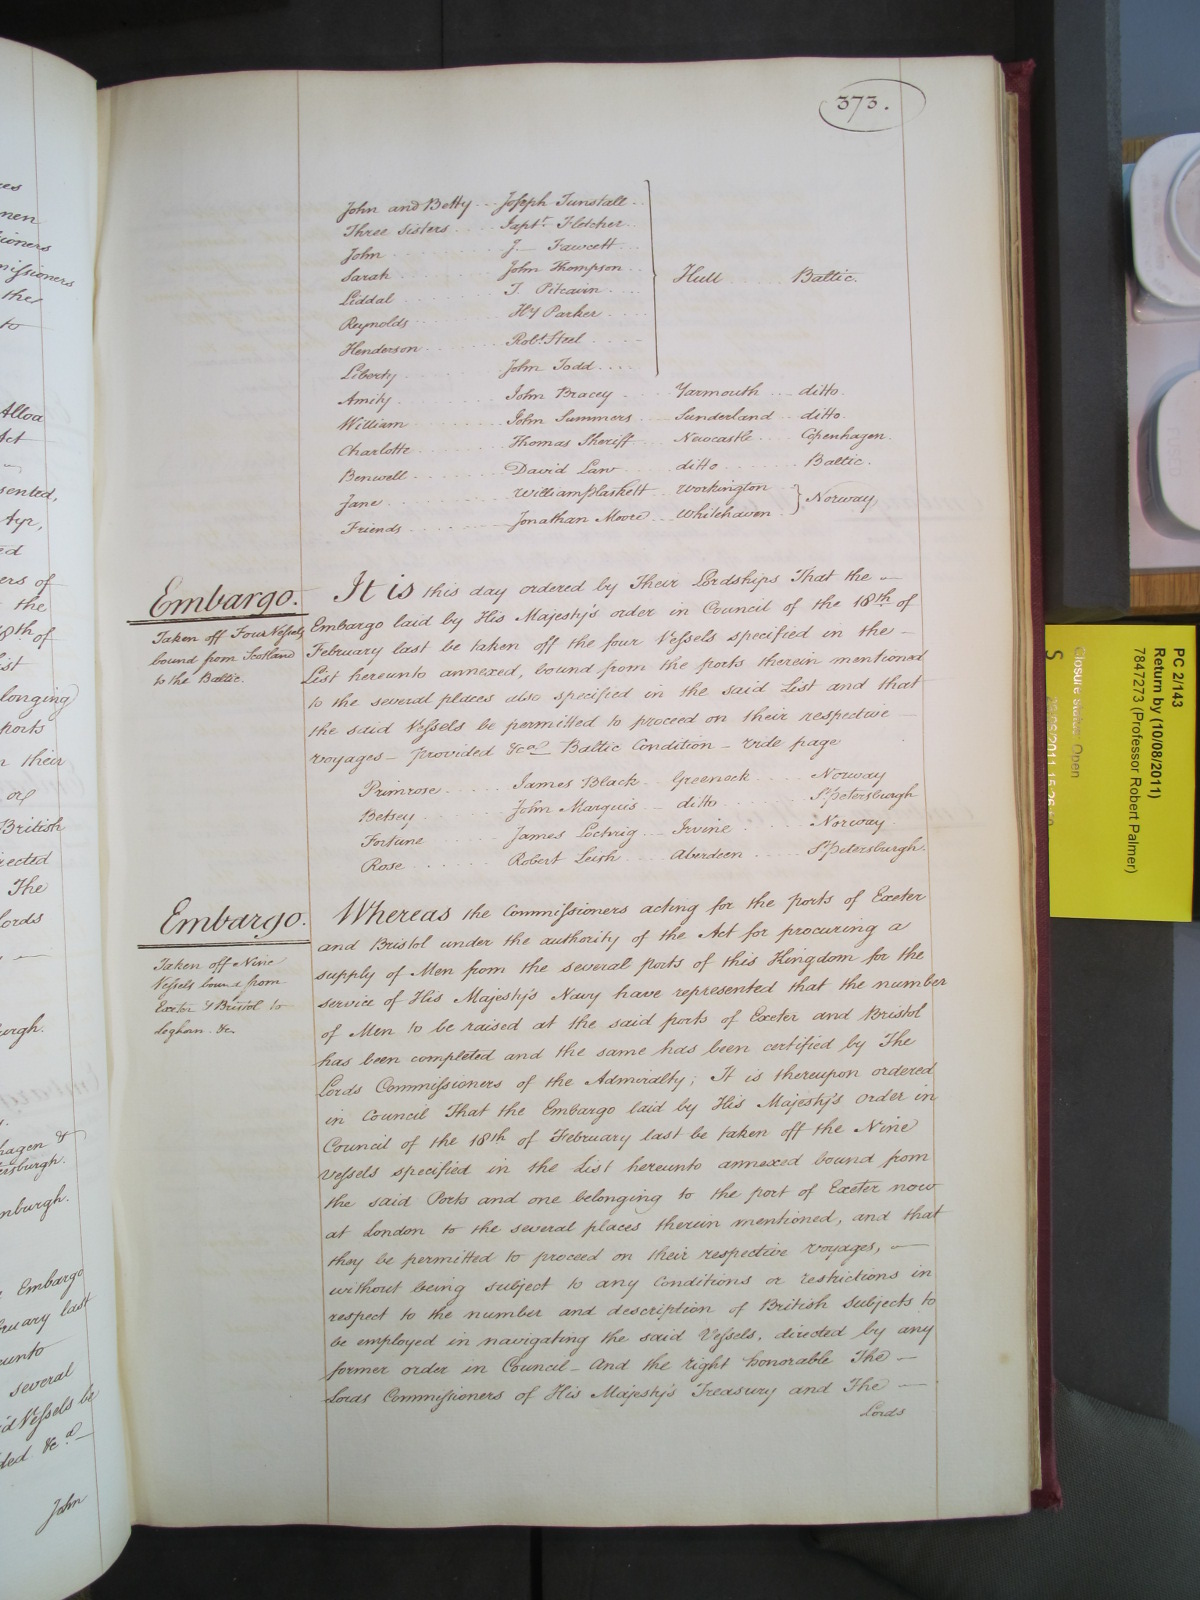 373.
John and Betty Joseph Tunstall
Three Sisters Capt. Fletcher
John J— Fawcett
Sarah John Thompson Hull Baltic.
Liddal T. Pitcairn
Reynolds Hy Parker
Henderson Robt. Steel
Liberty John Todd
Amity John Bracey Yarmouth ditto.
William John Summers Sunderland ditto.
Charlotte Thomas Sheriff Newcastle Copenhagen.
Benwell David Law ditto Baltic.
Jane William Plaskett Workington
Friends Jonathan Moore Whitehaven } Norway
Embargo.
Taken off Four Vessels
bound from Scotland
to the Baltic.
It is this day ordered by Their Lordships That the —
Embargo laid by His Majesty's order in Council of the 18th of
February last be taken off the four Vessels specified in the —
List hereunto annexed, bound from the ports therein mentioned
to the several places also specified in the said List and that
the said Vessels be permitted to proceed on their respective —
voyages — Provided &ca. Baltic Condition — vide page
Primrose James Black Greenock Norway
Betsey John Marquis ditto St. Petersburgh
Fortune James Irvine Norway
Rose Robert Leish Aberdeen St. Petersburgh.
Embargo.
Taken off Nine
Vessels bound from
Exeter & Bristol to
Leghorn &c.
Whereas the Commissioners acting for the ports of Exeter
and Bristol under the authority of the Act for procuring a
supply of Men from the several ports of this Kingdom for the
service of His Majesty's Navy have represented that the number
of Men to be raised at the said ports of Exeter and Bristol
has been completed and the same has been certified by The
Lords Commissioners of the Admiralty; It is thereupon ordered
in Council That the Embargo laid by His Majesty's order in
Council of the 18th of February last be taken off the Nine
Vessels specified in the List hereunto annexed bound from
the said Ports and one belonging to the port of Exeter now
at London to the several places therein mentioned, and that
they be permitted to proceed on their respective voyages, —
without being subject to any conditions or restrictions in
respect to the number and description of British Subjects to
be employed in navigating the said Vessels, directed by any
former order in Council — And the right honorable The —
Lords Commissioners of His Majesty's Treasury and The —
Lords
PC 2/143
Return by (10/08/2011)
7847273 (Professor Robert Palmer)
Closure status: Open
S